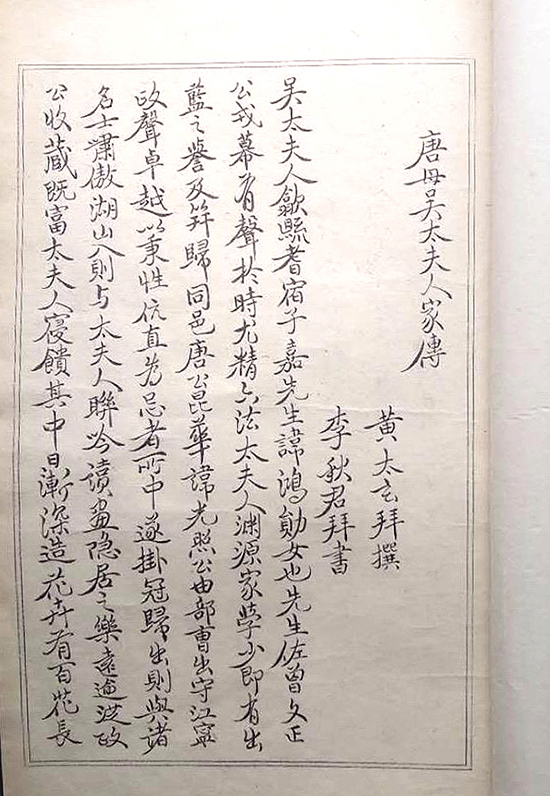 唐母吴太夫人家傳
黄太玄拜撰
李秋君拜書
吴太夫人歙縣耆宿子嘉先生諱鴻勛女也先生佐曾文正
公戎幕有聲於時尤精六法太夫人淵源家學少即有出
藍之譽及笄歸同邑唐公昆華諱光照公由部曹出守江寧
政聲卓越以秉性伉直為忌者所中遂掛冠歸出則與諸
名士肅傲湖山入則与太夫人聯吟讀畫隐居之樂遠逾従政
公收藏既富太夫人寝饋其中日漸深造花卉有百花長